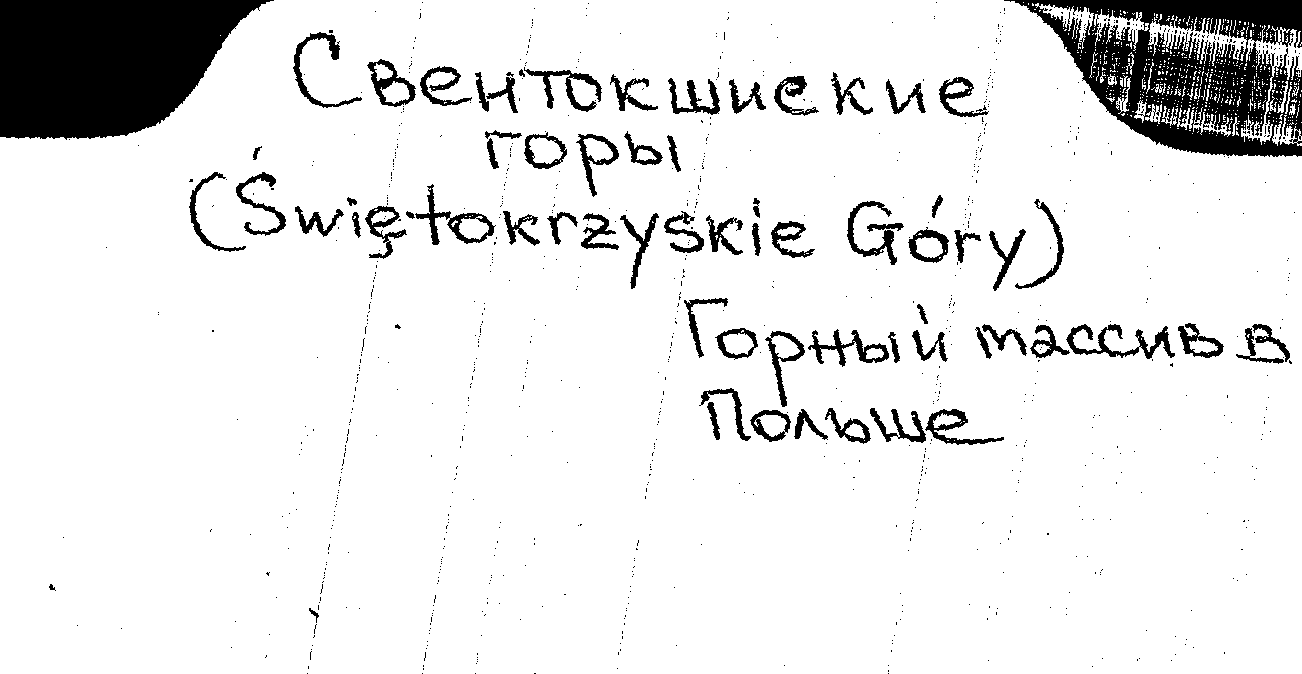 Свентокшиские
горы
(Świętokrzyskie Góry)
Горный массив в
Польше